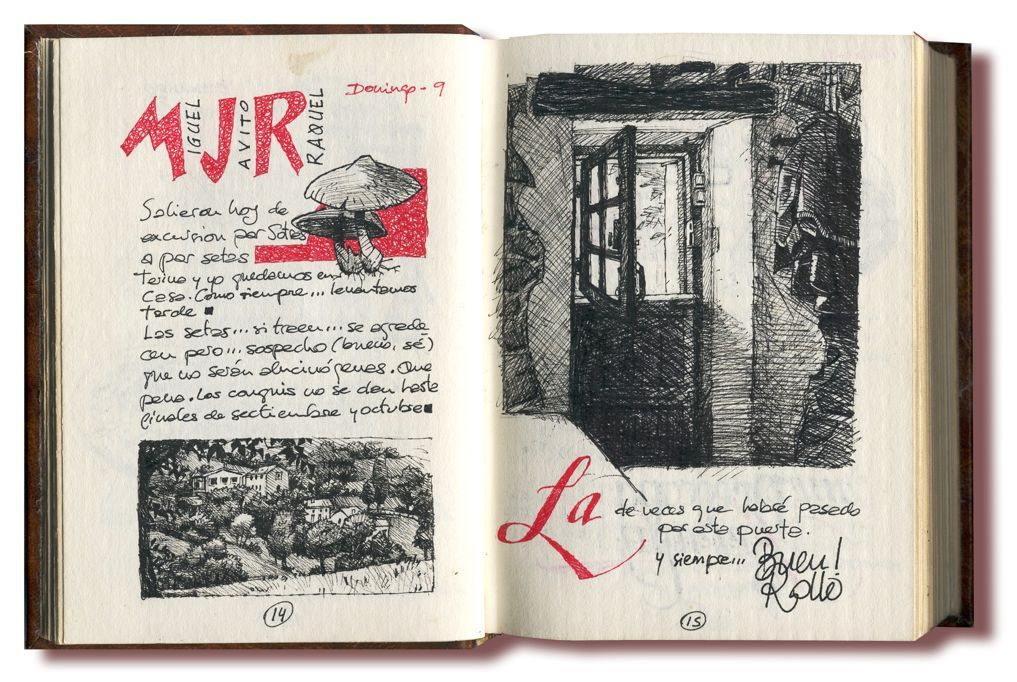 MJR
IGUEL
AVITO
RAQUEL
Domingo - 9
Salieron hoy de
excursion por
a por setas
y yo quedamos en
Casa. Como siempre... levantamos
tarde
Las setas... si traen... se agrade
cen pero... sospecho (bueno, sé)
que no serán alucinógenas. Que
pena. Los no se dan hasta
finales de sectiembre y octubre
14
La de veces que habré pasado
por esta puerta.
y siempre... Buen!
Rollo
15